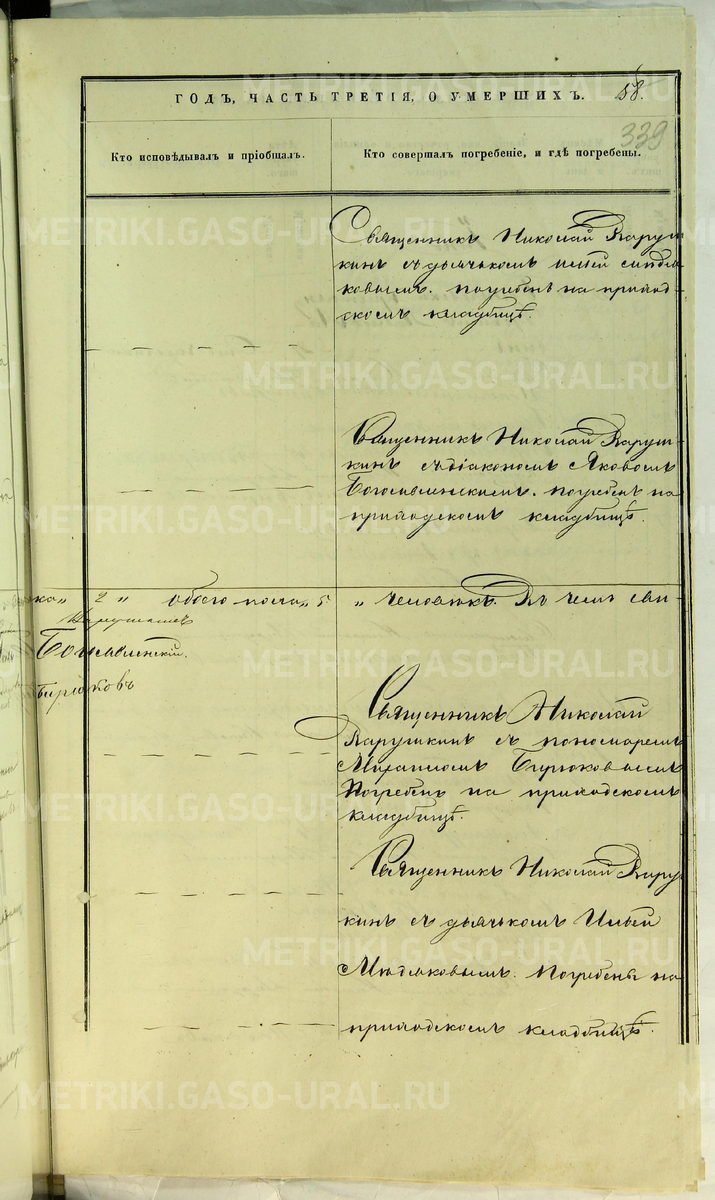 ГОДЪ, ЧАСТЬ ТРЕТІЯ, О УМЕРШИХЪ. 58.
339
Кто исповѣдывалъ и пріобщалъ. Кто совершалъ погребеніе, и гдѣ погребены.
Священникъ Николай Варуш
кинъ съ дьячькомъ Ильей
ковымъ. погребенъ на приход-
скомъ кладбищѣ.
Священникъ Николай Варуш-
кинъ съ діакономъ Яковомъ
Богоявленскимъ. погребенъ на
приходскомъ кладбищѣ.
2 " обоего пола " 5 " человѣкъ. Въ чемъ сви-
Богоявленскій.
Бирюковъ
Священникъ Николай
Варушкинъ съ пономаремъ
Михаиломъ Бирюковымъ
Погребенъ на приходскомъ
кладбищѣ.
Священникъ Николай Вару
кинъ съ дьячькомъ Ильей
Мѣдяковымъ. Погребены на
приходскомъ кладбищѣ.
METRIKI.GASO-URAL.RU